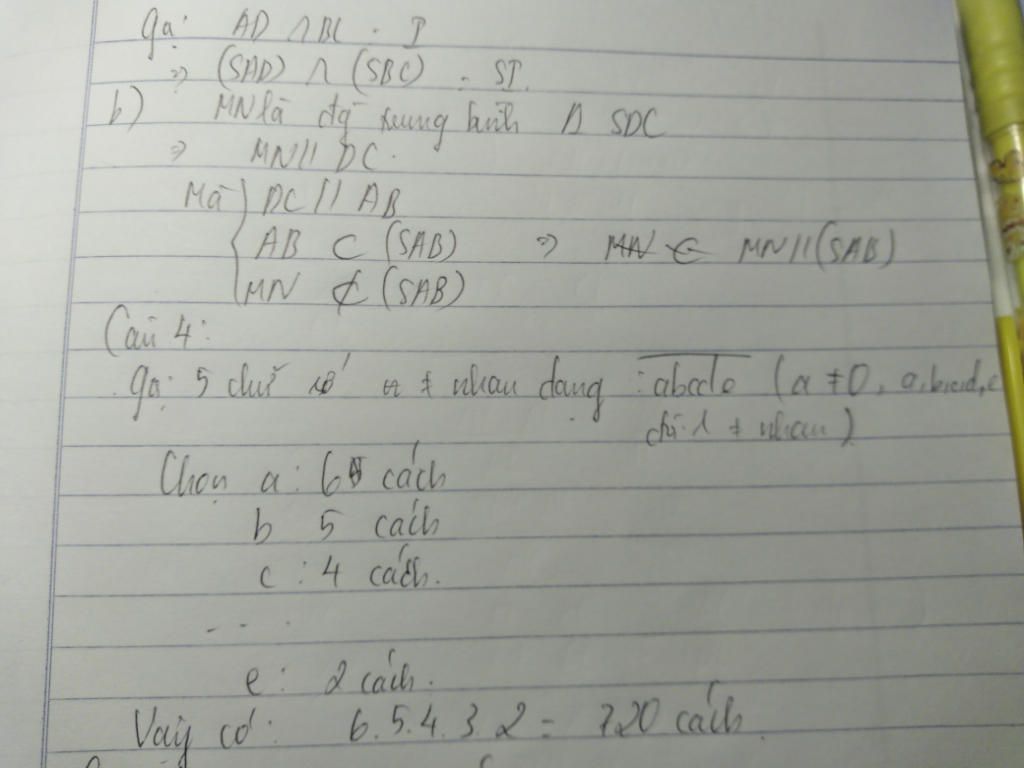 Gọi AD ∩ BC = I
=> (SAD) ∩ (SBC) = SI.
b) MN là đg trung bình Δ SDC
=> MN // DC.
Mà { DC // AB
AB ⊂ (SAB) => MN // (SAB)
MN ⊄ (SAB)
Câu 4:
Gọi 5 chữ số ≠ nhau dạng : abcde (a ≠ 0, a,b,c,d,e
≠ nhau)
Chọn a : 6 cách
b 5 cách
c : 4 cách.
....
e : 2 cách.
Vậy có : 6.5.4.3.2 = 720 cách.